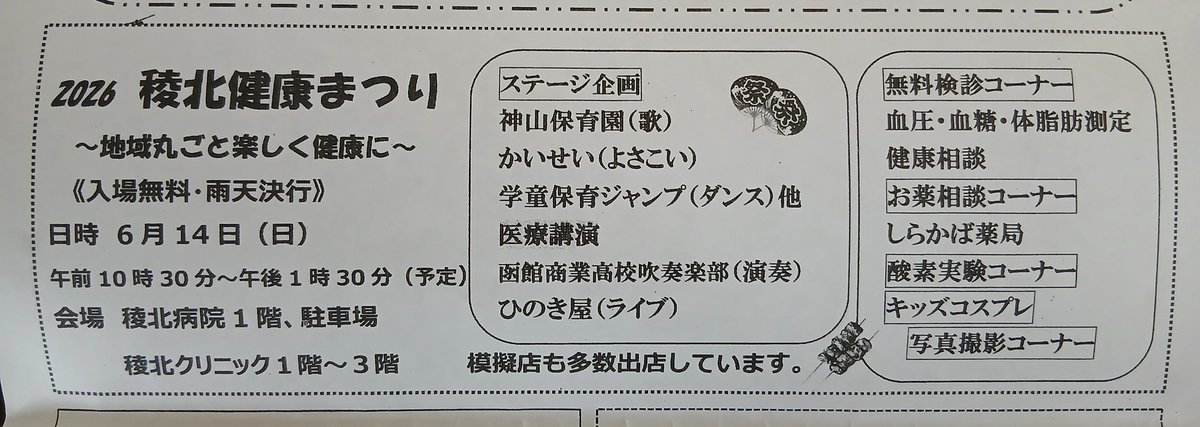 2026 稜北健康まつり
～地域丸ごと楽しく健康に～
《入場無料･雨天決行》
日時 6月14日（日）
午前10時30分～午後1時30分（予定）
会場 稜北病院1階、駐車場
稜北クリニック1階～3階
ステージ企画
神山保育園（歌）
かいせい（よさこい）
学童保育ジャンプ（ダンス）他
医療講演
函館商業高校吹奏楽部（演奏）
ひのき屋（ライブ）
祭 祭
模擬店も多数出店しています。
無料検診コーナー
血圧・血糖・体脂肪測定
健康相談
お薬相談コーナー
しらかば薬局
酸素実験コーナー
キッズコスプレ
写真撮影コーナー